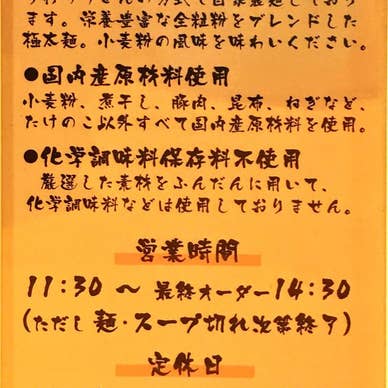 ます。栄養豊富な全粒粉をブレンドした
極太麺。小麦粉の風味を味わいください。
●国内産原材料使用
小麦粉、煮干し、豚肉、昆布、ねぎなど、
たけのこ以外すべて国内産原材料を使用。
●化学調味料保存料不使用
厳選した素材をふんだんに用いて、
化学調味料などは使用しておりません。
営業時間
11:30 〜 最終オーダー14:30
(ただし 麺・スープ切れ次第終了)
定休日